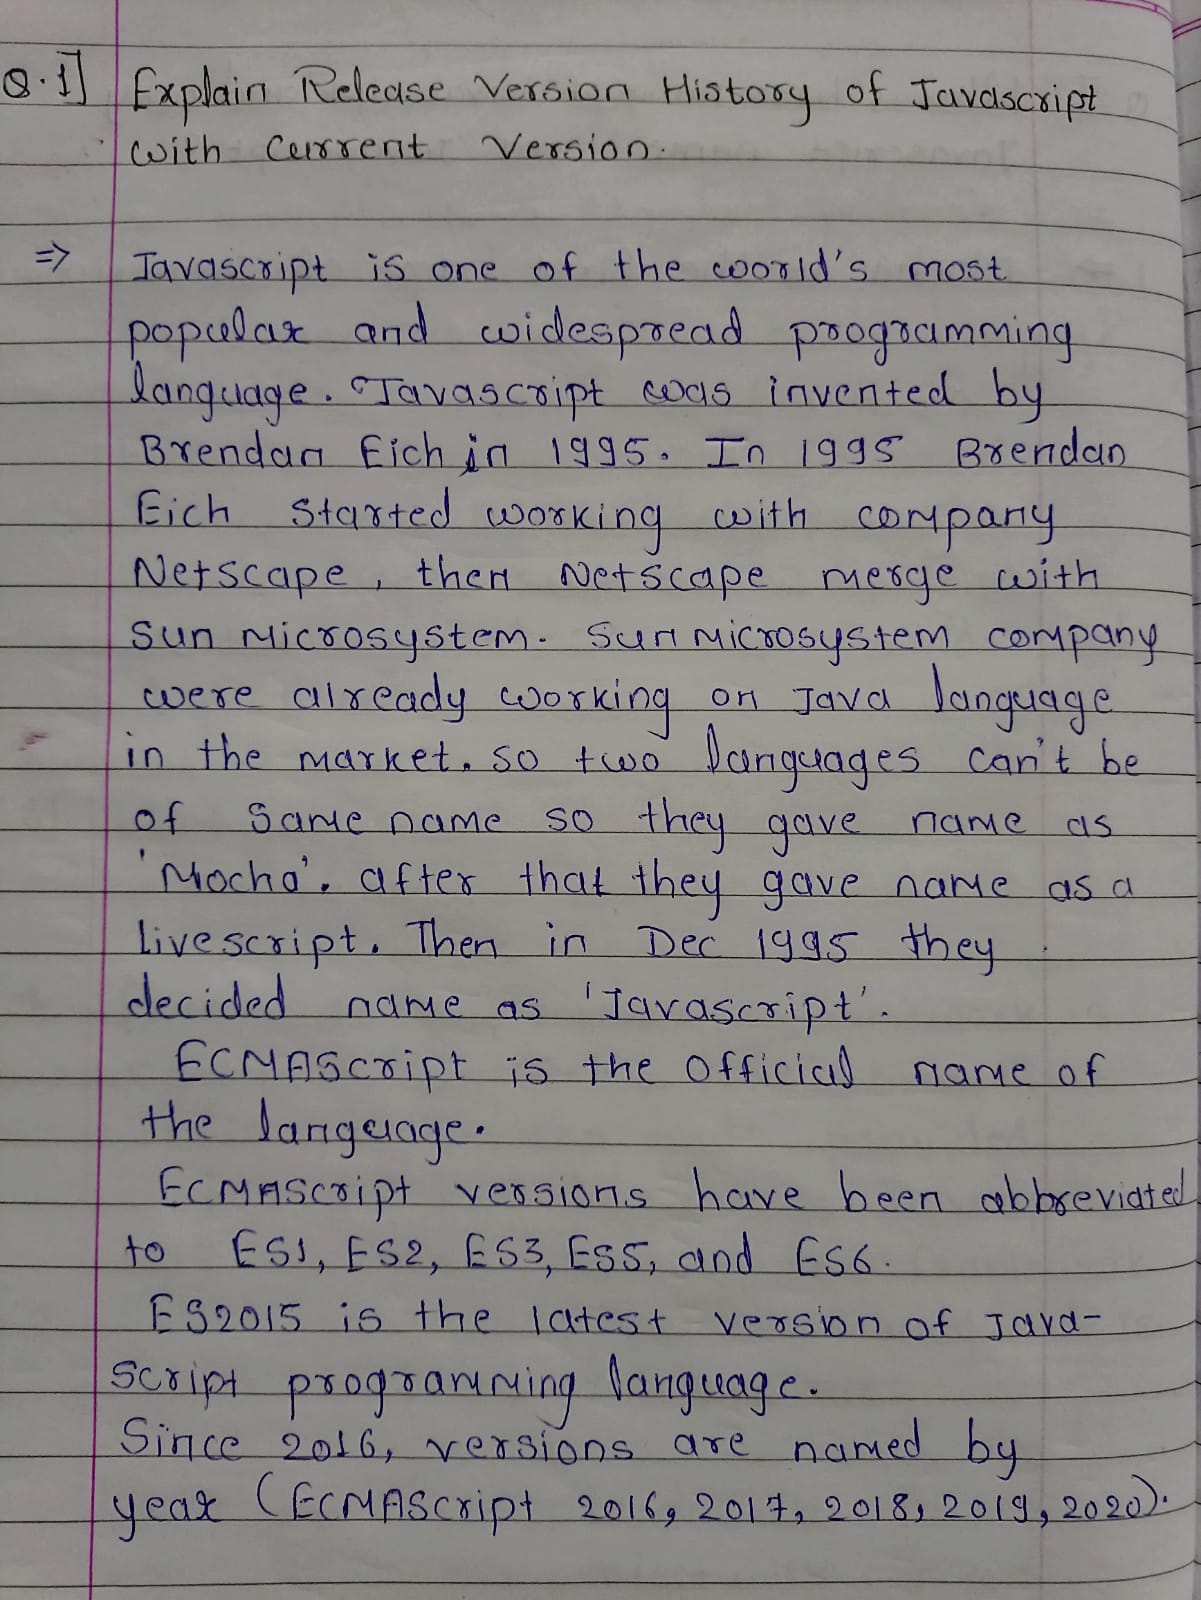 Q.1] Explain Release Version History of Javascript
with Current Version.
⇒ Javascript is one of the world's most
popular and widespread programming
language. Javascript was invented by
Brendan Eich in 1995. In 1995 Brendan
Eich Started working with company
Netscape, then Netscape merge with
Sun Microsystem. Sun Microsystem company
were already working on Java language
in the market. so two languages can't be
of Same name so they gave name as
'Mocha'. after that they gave name as a
livescript. Then in Dec 1995 they
decided name as 'Javascript'.
ECMAScript is the official name of
the language.
ECMAScript versions have been abbreviated
to ES1, ES2, ES3, ES5, and ES6.
ES2015 is the latest version of Java-
Script programming language.
Since 2016, versions are named by
year (ECMAScript 2016, 2017, 2018, 2019, 2020).